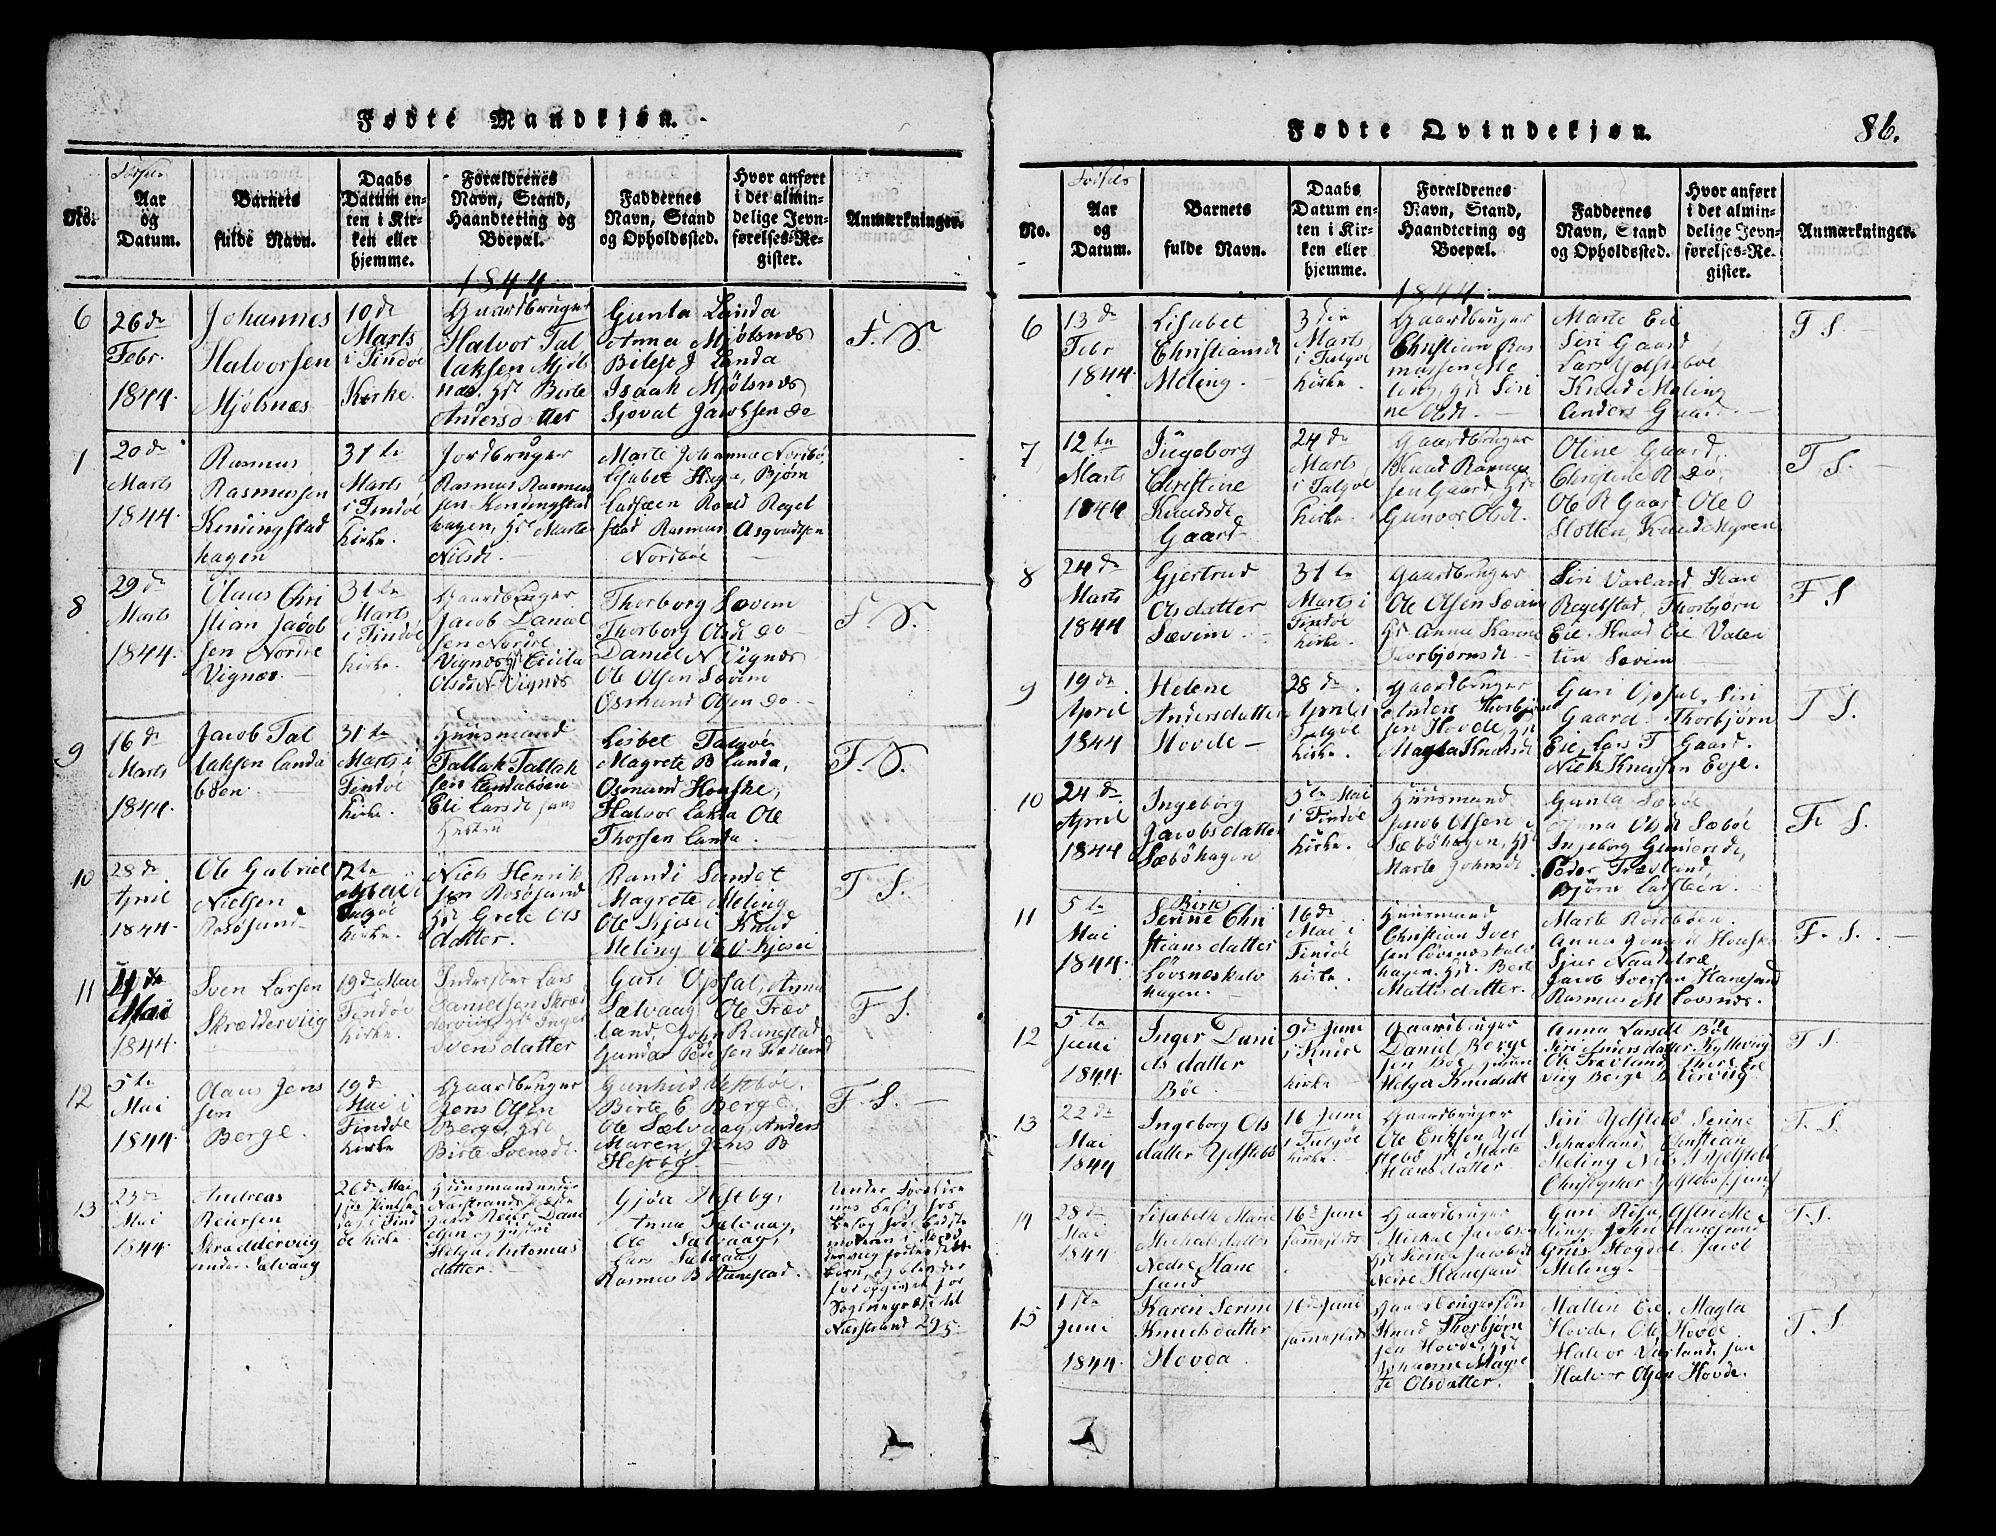 Fødte Mandkjøn.
Aar og Datum.
No.
Barnets fulde Navn.
Daabs Datum enten i Kirken eller hjemme.
Forældrenes Navn, Stand, Haandtering og Boepæl.
Faddernes Navn, Stand og Opholdssted.
Hvor anført i det almindelige Jevnførelses-Register.
Anmærkninger.
1844
6
26 de
Febr.
1844.
Johannes
Halvorsen
Mjølsnæs
10 de
Marts
i Findøe
Kirke.
Gaardbruger
Halvor Tal
laksen Mjøls
næs. Hst Birte
Andersdatter
Gunla Landa
Anna Mjølsnæs
Landa
Isaak Mjølsnæs
Sjovat Jacobsen do
F. S.
1
20 de
Marts
1844.
Rasmus
Rasmussen
hagen
31 te
Marts
i Findøe
Kirke.
Jordbruger
Rasmus Rasmus
sen
hagen, Hst Marte
Nilsdt
Marte Johanna Nordbø,
Lisabet Bjørn
Ladsteen
Rasmus Asgvaldsen
Nordbøe
8
29 de
Marts
1844.
Olaus Chri
stian Jacob
sen Nordre
Vignæs.
31 te
Marts
i Findøe
Kirke.
Gaardbruger
Jacob Daniel
sen Nordre
Vignæs
Olsdt N Vignæs
Thorborg Sævim
Thorborg Olsdt do
Daniel N Vignæs
Ole Olsen Sævim
Osmund Olsen do
F. S.
9
16 de
Marts
1844.
Jacob Tal
laksen Landa
bøen
31 te
Marts i
Findøe
Kirke.
Huusmand
Tallak Tallak
sen Landabøen
Eli Larsdt hans
Hustru
Lisbet Talgøe
Magrete B Landa,
Osmund Houske,
Halvor Landa Ole
Thorsen Landa.
F. S.
10
28 de
April
1844.
Ole Gabriel
Nielsen
Rosøsund
12 te
i
Talgøe
Kirke
Niels Henrik
sen Rosøsund
Hst Grete Ols
datter.
Randi Sundet
Magrete Meling
Ole Kjosii Knud
Meling Ole O Kjosii
F S.
11
Mai
1844
Sven Larsen
Skrædderviig
19 de Mai
Findøe
Kirke.
Inderster Lars
Danielsen Skræd
derviig, Hst Inger
Svensdatter
Guri Opsal, Anna
Sælvaag Ole Træv
land John Ranestad
F S.
12
5 te
Mai
1844.
Olaus Jens
sen
Berge.
19 de
Mai i
Findøe
Kirke
Gaardbruger
Jens Olsen
Berge, Hst
Birte Svensdt.
Gunhild Hestbøe,
Birte E Berge
Ole Sælvaag, Anders
Maren, Jens B
Hestby
F. S.
13
23 de
Mai
1844.
Andreas
Reiersen
Skrædderviig
under Salvaag
26 de Mai
i Find
øe Kirke
Huusmand under
Reier Dani
elsen og Hustru
Helga Antonius
datter.
Gjøa Hestby,
Anna Sælvaag,
Ole Sælvaag,
Lars Sælvaag
Rasmus B Ranestad.
Under
besøg hos
Skræd
derviig fødte dette
Barn, og blev der
for opgivet for
Sognepræst det
Nærstrand 295.
Fødte Qvindekjøn.
86.
No.
Aar og Datum.
Barnets fulde Navn.
Daabs Datum enten i Kirken eller hjemme.
Forældrenes Navn, Stand, Haandtering og Boepæl.
Faddernes Navn, Stand og Opholdssted.
Hvor anført i det almindelige Jevnførelses-Register.
Anmærkninger.
1844
6
13 de
Febr
1844.
Lisabet
Christiansdt
Meling.
3 die
Marts
i Talgøe
Kirke.
Gaardbruger
Christian Ras
mussen Me
ling, Hst Siri
ne Olsdt.
Marte Eie
Siri Gaard
Lars Ydstebøe
Knud Meling
Anders Gaard
F S.
7
12 te
Marts
1844
Ingeborg
Christine
Knudsdt
Gaard
24 de
Marts
i Talgøe
Kirke.
Gaardbruger
Knud Rasmus
sen Gaard, Hst
Gunvor Olsdt.
Oline Gaard,
Christine R do,
Ole R Gaar Ole O
Slotten, Knud Myren
F S.
8
24 de
Marts
1844
Gjertrud
Olsdatter
Sævim.
31 te
Marts i
Findøe
Kirke.
Gaardbruger
Ole Olsen Sævim
Hst Anna Karine
Thorbjørnsdt.
Siri Varland Kari
Regelstad, Thorbjørn
Eie. Knud Eie Valen
tin Sævim
F S
9
19 de
April
1844
Helene
Andersdatter
Hovde
28 de
April i
Talgøe
Kirke.
Gaardbruger
Anders Thorbjørn
sen Hovde, Hst
Magla Knudsdt
Guri Opsal, Siri
Gaard Thorbjørn
Eie, Lars T Gaard.
Niels Knudsen Eeje.
F S.
10
24 de
April
1844
Ingeborg
Jacobsdatter
Sæbøhagen
5 te Mai
i Findøe
Kirke.
Huusmand
Jacob Olsen
Sæbøhagen, Hst
Marte Johnsdt
Gunla Sæbøe
Anna Olsdt Sæbøe
Ingeborg Gundersdt,
Peder Trævland,
Bjørn Ladsteen.
F. S.
11
5 te
Mai
1844.
Birte
Serine Chri
stiansdatter
hagen.
16 de
Mai i
Findøe
Kirke.
Huusmand
Christian Iver
sen
hagen. Hst. Berte
Mattisdatter.
Marte Rosebøen.
Anna
Sjur Naadetræ
Jacob Iversen Hanesund
Rasmus M Lovsnæs.
F. S.
12
5 te
Juni
1844.
Inger Dani
elsdatter
Bøe
9 de Juni
i Findøe
Kirke
Gaardbruger
Daniel Børge
sen Bøe, Huustru
Helga Knudsdt
Anna Larsdt Bøe
Siri Andersdatter Kyttviig
Ole Trævland,
viig Børge B
F S.
13
22 de
Mai
1844
Ingeborg Ols
datter Ydstebø
16 Juni
i Talgøe
Kirke.
Gaardbruger
Ole Eriksen Yd
stebø Hst Marte
Hansdatter
Siri Ydstebø Serine
Christian
Meling Nils Ydstebø
Christopher Ydstebø, jun
F. S.
14
28 de
Mai
1844
Lisabeth Marie
Michalsdatter
Nedre Hane
sund
16 de Juni
sammesteds
Gaardbruger
Michal Jacobsen
Hst Serine Jacobsdt
Nedre Hanesund
Guri Meling
Meling.
F. S.
15
1 ste
Juni
1844.
Karen Serine
Knudsdatter
Hovda.
16 de Juni
sammesteds
Gaardbrugersøn
Knud Thorbjørn
sen Hovde, Hst
Johanne Magre
te Olsdatter.
Mallin Eie, Magla
Hovde, Ole Hovde
Halvor Vigland, jun
Halvor Olsen Hovde.
F. S